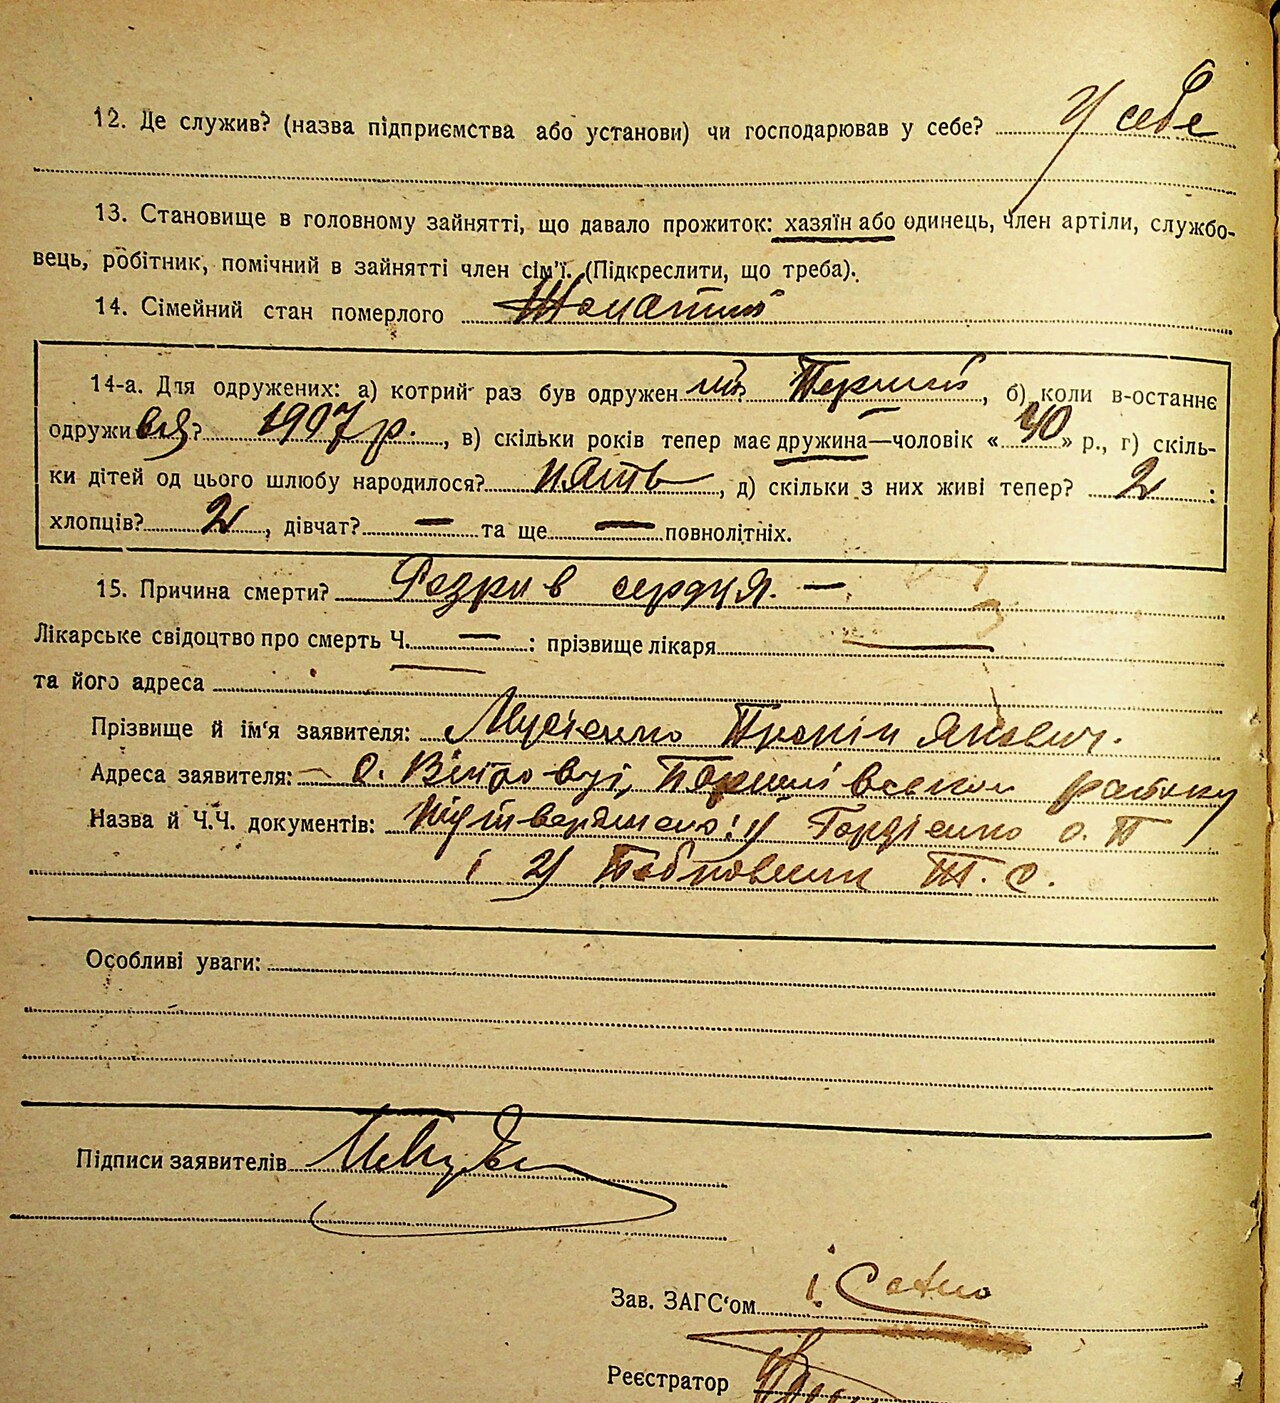 12. Де служив? (назва підприємства або установи) чи господарював у себе? У себе
13. Становище в головному зайнятті, що давало прожиток: хазяїн або одинець, член артіли, службо-
вець, робітник, помічний в зайнятті член сім'ї. (Підкреслити, що треба).
14. Сімейний стан померлого Жонатий
14-а. Для одружених: а) котрий раз був одружений? Перший, б) коли в-останнє
одружився? 1907 р., в) скільки років тепер має дружина—чоловік «40» р., г) скіль-
ки дітей од цього шлюбу народилося? пять, д) скільки з них живі тепер? 2:
хлопців? 2, дівчат? — та ще — повнолітніх.
15. Причина смерти? Розрив серця. —
Лікарське свідоцтво про смерть Ч. — : прізвище лікаря —
та його адреса
Прізвище й ім'я заявителя: Мусієнко Якович.
Адреса заявителя: — с. району
Назва й Ч.Ч. документів: 1) Гордієнко О. П
і 2) Т. С.
Особливі уваги:
Підписи заявителів
Зав. ЗАГС'ом
Реєстратор